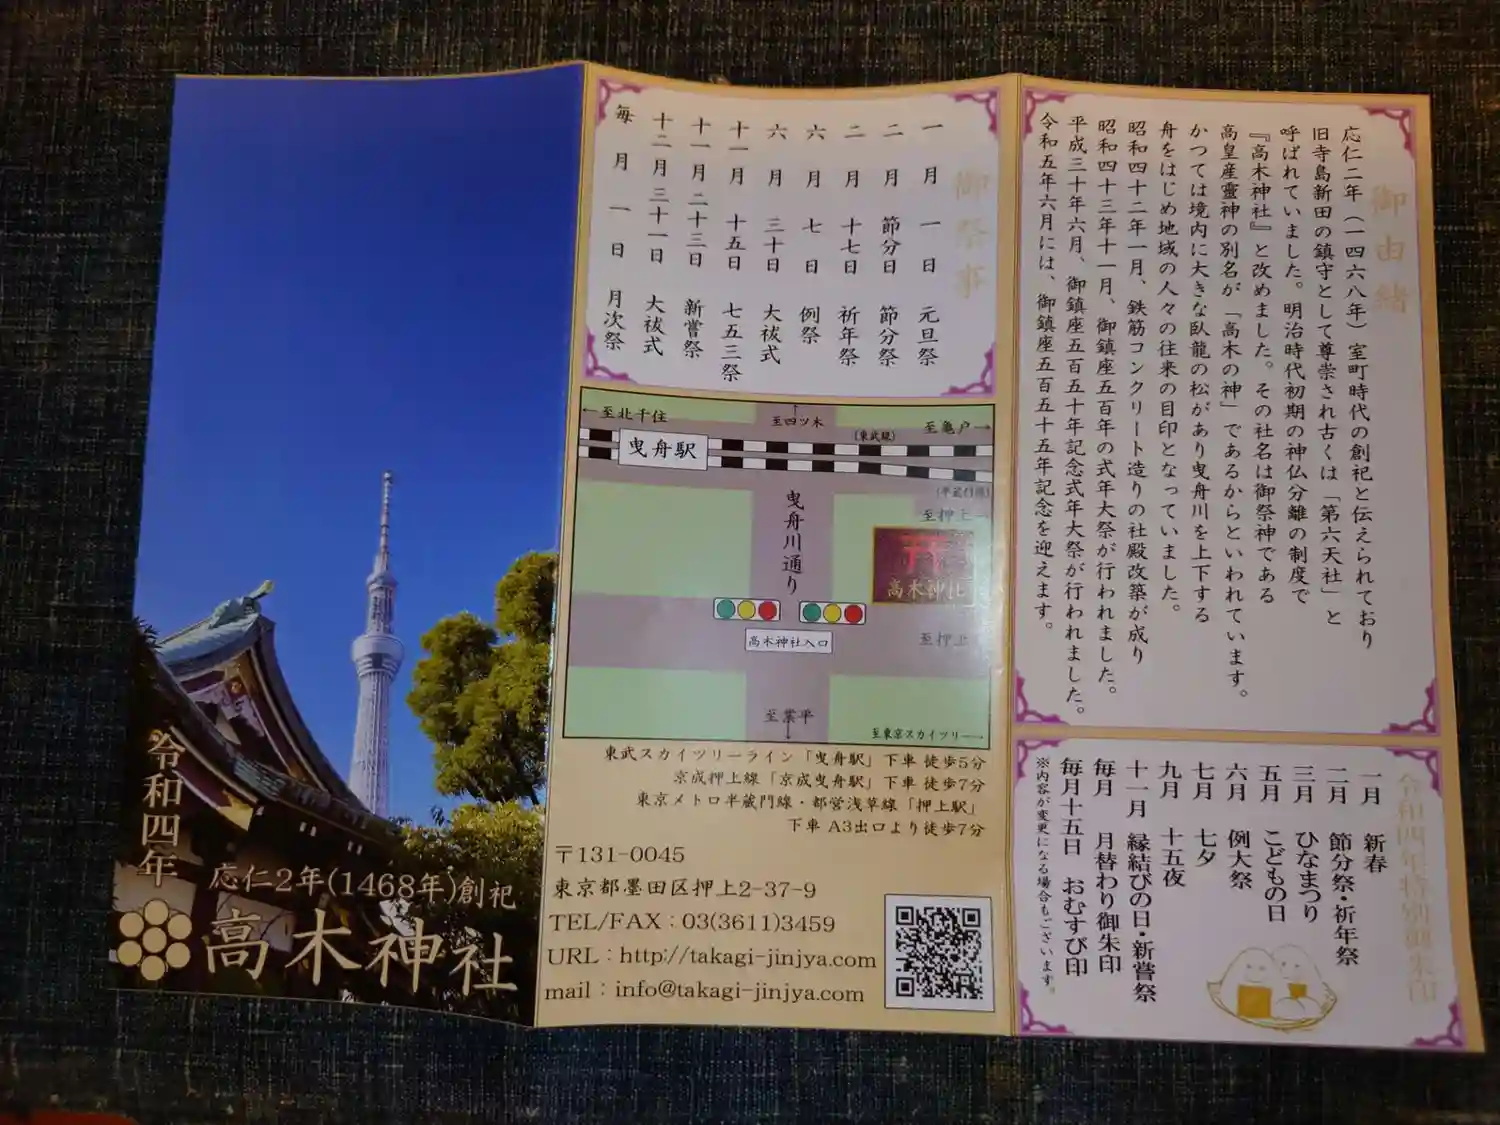 令和四年
応仁2年(1468年)創祀
高木神社
御祭事
一月一日 元旦祭
二月節分日 節分祭
二月十七日 祈年祭
六月七日 例祭
六月三十日 大祓式
十一月十五日 七五三祭
十一月二十三日 新嘗祭
十二月三十一日 大祓式
毎月一日 月次祭
←至北千住
至四ツ木
(東武線)
至亀戸→
曳舟駅
曳舟川通り
至押上→
高木神社
高木神社入口
至押上
至業平
至東京スカイツリー→
東武スカイツリーライン「曳舟駅」下車 徒歩5分
京成押上線「京成曳舟駅」下車 徒歩7分
東京メトロ半蔵門線・都営浅草線「押上駅」
下車 A3出口より徒歩7分
〒131-0045
東京都墨田区押上2-37-9
TEL/FAX：03(3611)3459
URL：http://takagi-jinjya.com
mail：info@takagi-jinjya.com
御由緒
応仁二年（一四六八年）室町時代の創祀と伝えられており
旧寺島新田の鎮守として尊崇され古くは「第六天社」と
呼ばれていました。明治時代初期の神仏分離の制度で
『高木神社』と改めました。その社名は御祭神である
高皇産靈神の別名が「高木の神」であるからといわれています。
かつては境内に大きな臥龍の松があり曳舟川を上下する
舟をはじめ地域の人々の往来の目印となっていました。
昭和四十二年一月、鉄筋コンクリート造りの社殿改築が成り
昭和四十三年十一月、御鎮座五百年の式年大祭が行われました。
平成三十年六月、御鎮座五百五十年記念式年大祭が行われました。
令和五年六月には、御鎮座五百五十五年記念を迎えます。
令和四年特別御朱印
一月 新春
二月 節分祭・祈年祭
三月 ひなまつり
五月 こどもの日
六月 例大祭
七月 七夕
九月 十五夜
十一月 縁結びの日・新嘗祭
毎月 月替わり御朱印
毎月十五日 おむすび印
※内容が変更になる場合もございます。